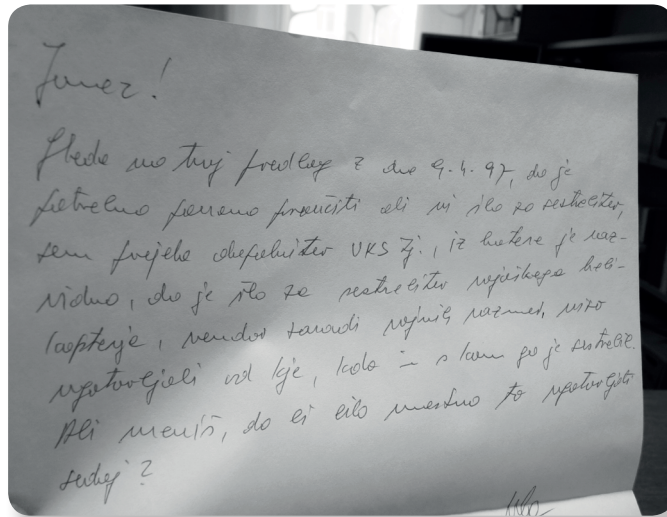 Janez!
Glede na tvoj predlog z dne 9.4.97, da je
potrebno ponovno proučiti ali ni šlo za sestrelitev,
sem prejela dopolnitev UKS Lj., iz katere je raz-
vidno, da je šlo za sestrelitev vojaškega heli-
kopterja, vendar zaradi vojnih razmer, niso
ugotavljali od kje, kdo in s kom ga je sestrelil.
Ali meniš, da bi bilo umestno to ugotavljati
sedaj?